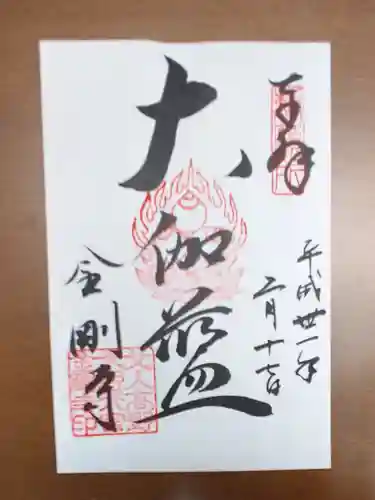 奉拝
平成卅一年
二月十七日
大伽藍
金剛寺